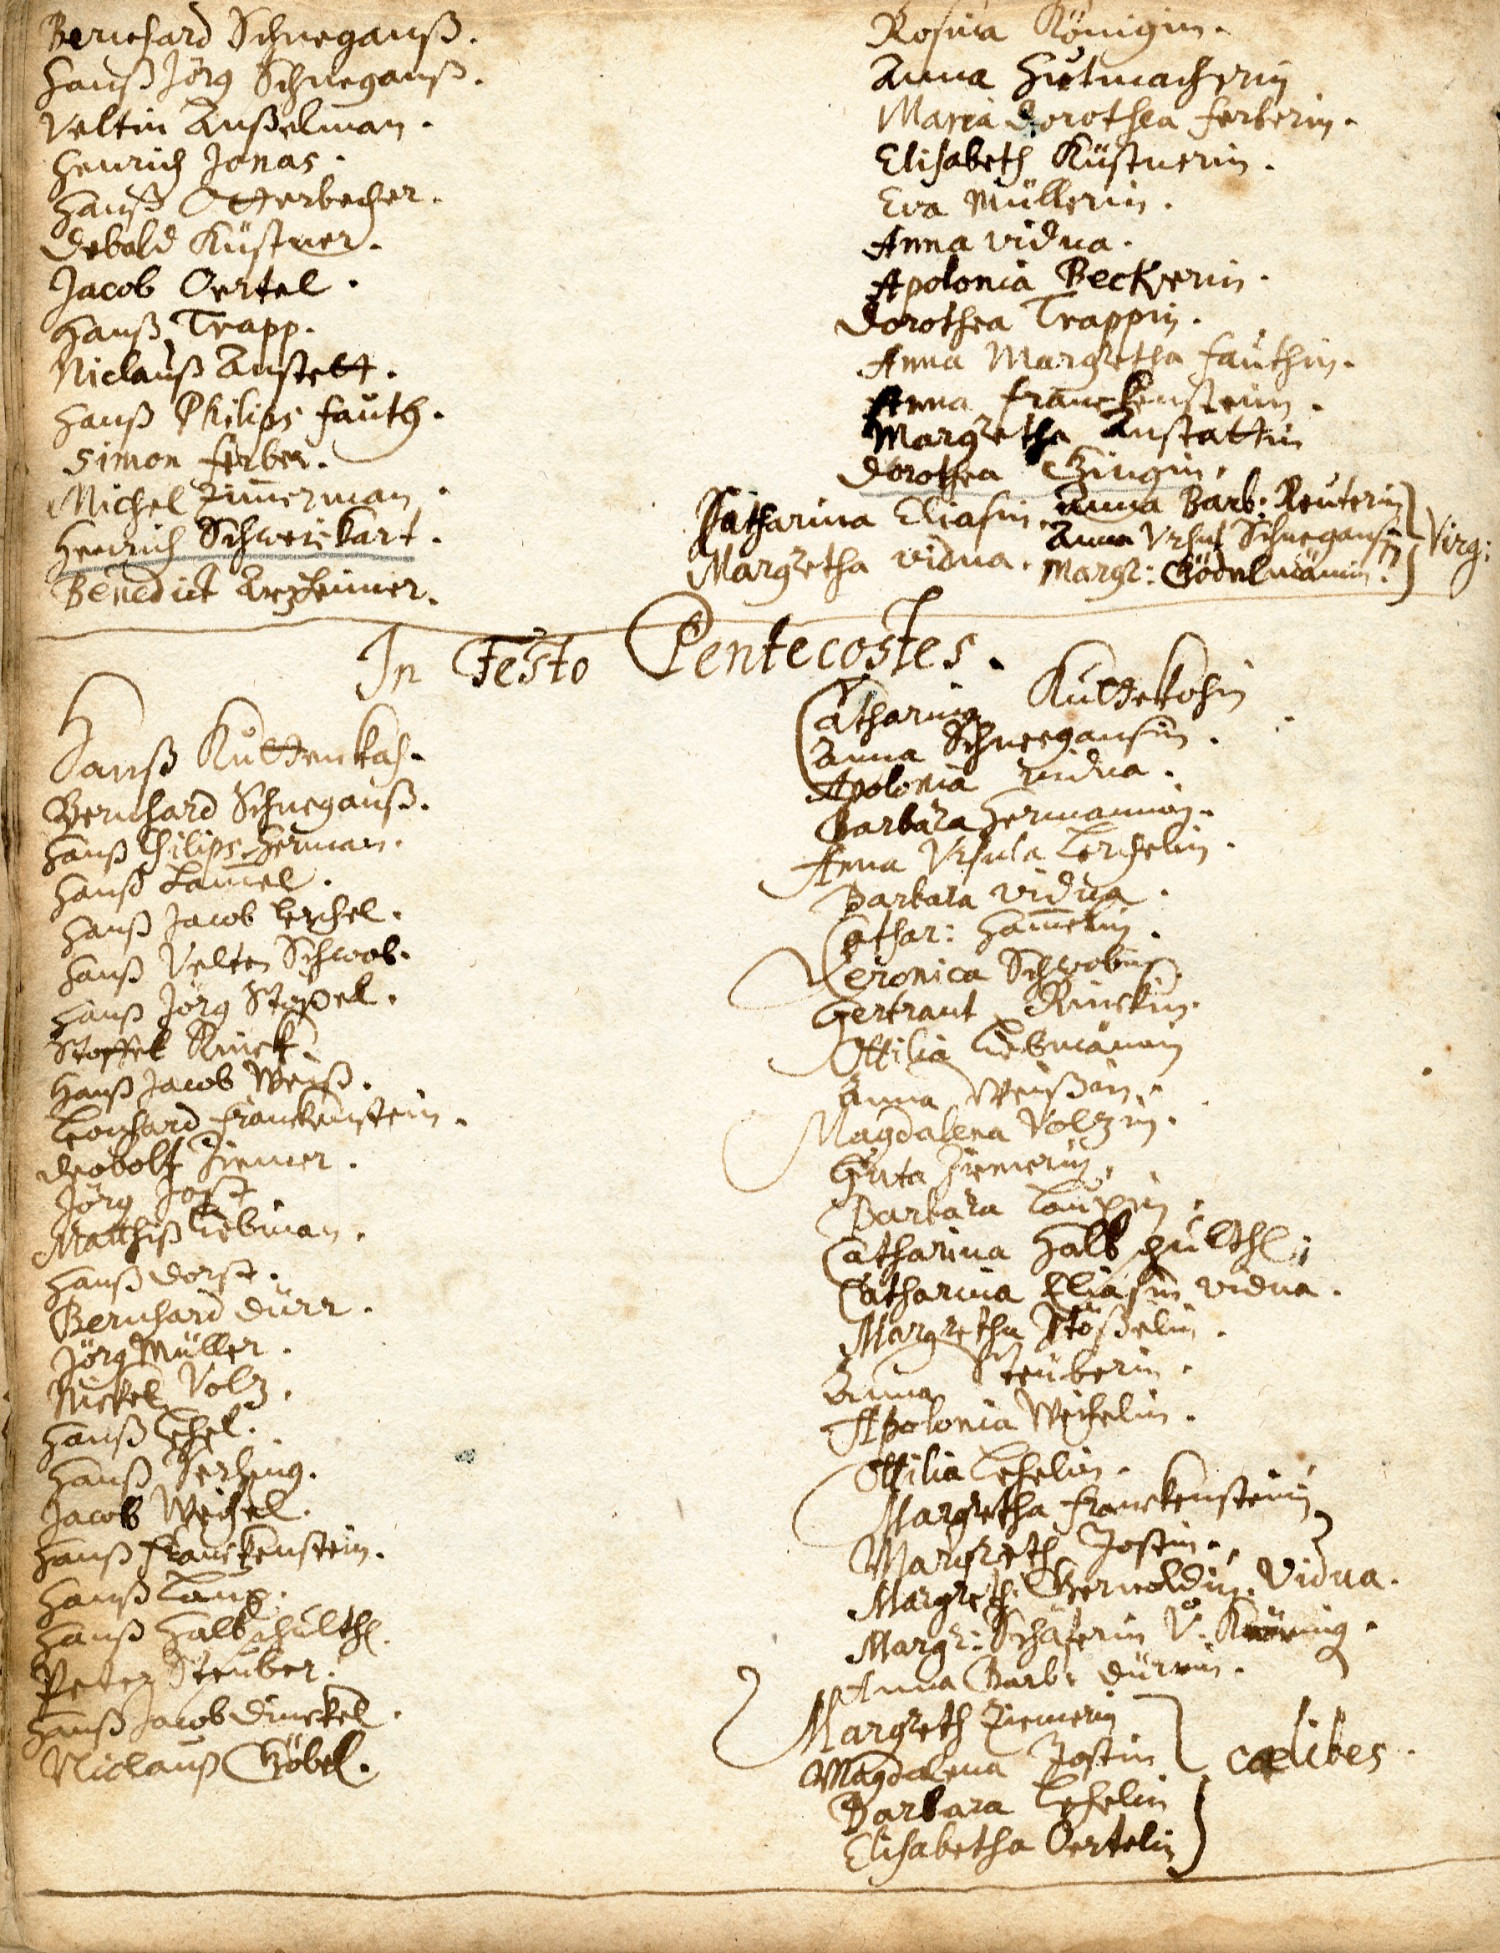 Bernhard Schneganß.
Hanß Jörg Schneganß.
Veltin Anßelman.
Henrich Jonas.
Hanß Otterbecher.
Debold Küstner.
Jacob Oertel.
Hanß Trapp.
Niclauß Anstett.
Hanß Philips Fauth.
Simon Ferber.
Michel Zim̄erman
Henrich Schweickart.
Benedict
Rosina Königin.
Anna Hutmacherin
Maria Dorothea Ferberin.
Elisabeth Küstnerin.
Eva Müllerin.
Anna vidua.
Apolonia Beckerin.
Dorothea Trappin.
Anna Margretha Fauthin.
Anna Franckensteinin.
Margretha Anstattin
Dorothea
Catharina Eliasin. Anna Barb: Reuterin
Margretha vidua. Anna Vrsul Schnegansin
Margr: Gödelmänin. Virg:
In Festo Pentecostes.
Hanß Kuttenkah.
Bernhard Schneganß.
Hanß Philips Herman.
Hanß Ham̄el.
Hanß Jacob Lerchel.
Hanß Velten Schwob.
Hanß Jörg Stößel.
Stoffel Rinck.
Hanß Jacob Weiß.
Leonhard Franckenstein.
Deobolt Ziemer.
Jörg Jost
Matthiß Liebman.
Hanß Dorst.
Bernhard Dürr.
Jörg Müller.
Nickel Volz.
Hanß Lehel.
Hanß
Jacob Weichel.
Hanß Franckenstein.
Hanß Laux.
Hanß Halbschulth.
Peter Steuber.
Hanß Jacob Dinckel.
Niclauß Göbel.
Catharina Kuttekohin
Anna Schneegansin.
Apolonia vidua.
Barbara Hermannin.
Anna Vrsula Lerchelin.
Barbara vidua.
Cathar: Ham̄elin.
Veronica Schwobin.
Gertraut Rinckin.
Ottilia Liebmänin
Anna Weißin.
Magdalena Volzin.
Guta Ziemerin.
Barbara Lauxin.
Catharina Halbschulth:
Catharina Eliasin vidua.
Margretha Stößelin.
Anna Steuberin.
Apolonia Weichelin.
Ottilia Lehelin.
Margretha Franckensteinin
Margreth Jostin.
Margreth: Bernoldin. Vidua.
Margr: Schäferin V.
Anna Barb: Dürrin.
Margreth Ziemerin
Magdalena Jostin cælibes.
Barbara Lehelin
Elisabetha Oertelin